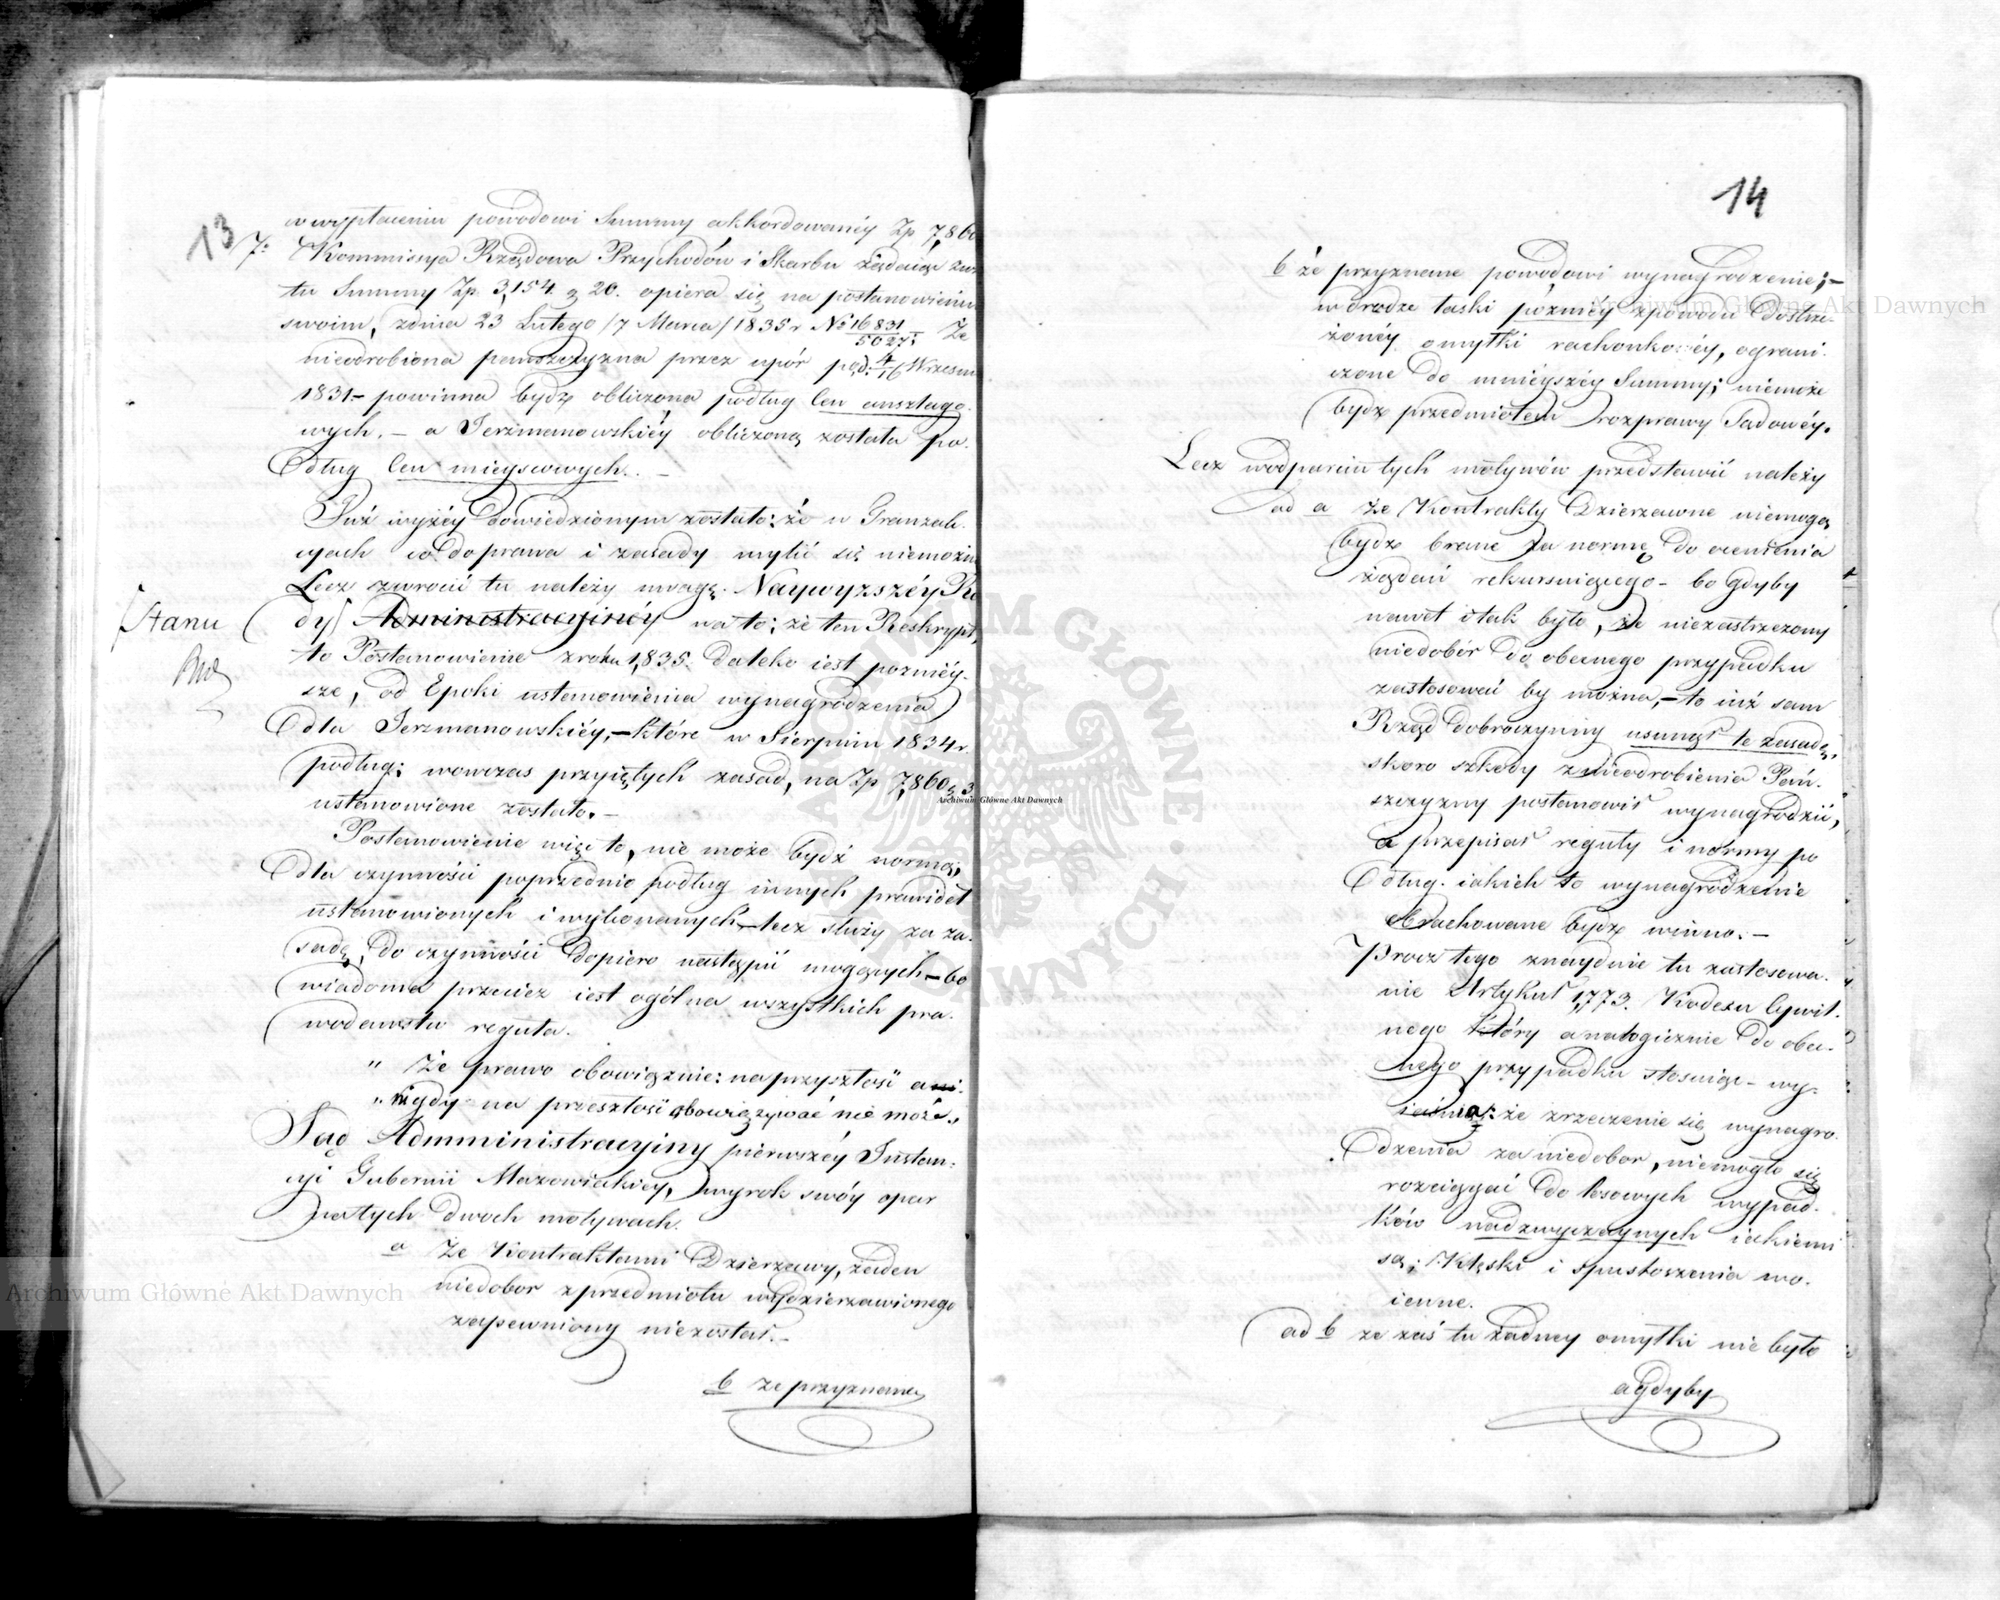 13
w wypłaceniu powodowi Summy akkordowanéy Zp 7,860
7: Kommissya Rządowa Przychodów i Skarbu żądaiąc zwro
tu Summy Zp. 3,154 g 20. opiera się na postanowieniu
swoim, zdnia 23 Lutego /7 Marca/ 1835 r No 16831/5027: Że
nieodrobiona pańszczyzna przez upór pod: 4/16 Wrzesn
1831 – powinna bydz obliczona podług Cen anszlago-
wych. – a Jerzmanowskiéy obliczoną została po-
dług Cen mieyscowych. –
Już wyżéy dowiedzionym zostało: że w Tranzak-
cyach co do prawa i zasady mylić się niemożna
Lecz zwrocić tu należy uwagę Naywyzszéy Ra
dy Administracyjnéy na to; że ten Reskrypt,
Stanu
to Postanowienie zroku 1835. daleko iest pozniéy-
sze, od Epoki ustanowienia wynagrodzenia
dla Jerzmanowskiéy, – które w Sierpniu 1834 r
podług: wowczas przyiętych zasad, na Zp 7,860 g 3
ustanowione zostało. –
Postanowienie więc to, nie może bydź normą;
dla czynności poprzednio podług innych prawideł
ustanowionych i wykonanych – lecz służy za za-
sadę, do czynności dopiero nastąpić mogących – bo
wiadoma przeciez iest ogólna wszystkich pra-
wodawstw reguła.
„ Że prawo obowiązuie: na przyszłość a ni-
„ nigdy na przeszłość obowiązywać nie może „
Sąd Admministracyjny pierwszéy Instan-
cyi Gubernii Mazowieckiey, wyrok swóy oparł
na tych dwoch motywach.
a Że Kontraktami Dzierzawy, żaden
niedobor z przedmiotu wydzierzawionego
zapewniony niezostał. –
b ze przyznane
14
b że przyznane powodowi wynagrodzenie; –
w drodze łaski pózniéy zpowodu dostrze-
żonéy omyłki rachonkowéy, ograni-
czone do mniéyszéy Summy; niemoże
bydz przedmiotem rozprawy Sadowéy.
Lecz wodparciu tych motywów przedstawić należy
ad a że Kontrakty Dzierzawne niemogą
bydz brane za normę do ocenienia
żądań rekursuiącego – bo gdyby
nawet i tak było, że niezastrzeżony
niedobór do obecnego przypadku
zastosować by można, – to iuż sam
Rząd dobroczynny usunął te zasadę,
skoro szkody z nieodrobienia Pań-
szczyzny postanowił wynagrodzić,
a przepisał reguły i normy po
dług iakich to wynagrodzenie
obrachowane bydz winno. –
Procz tego znayduie tu zastosowa-
nie Artykuł 1,773. Kodexu Cywil-
nego który analogicznie do obec-
nego przypadku stosuiąc – wy-
iaśnia: że zrzeczenie się wynagro-
dzenia za niedobor, niemogło się
rozciągać do losowych wypad-
ków nadzwyczaynych iakiemi
są; Klęski i spustoszenia wo-
ienne.
ad b ze zaś tu żadney omyłki nie było
a Gdyby
Archiwum Główne Akt Dawnych
Archiwum Główne Akt Dawnych
Archiwum Główne Akt Dawnych
ARCHIWUM GŁÓWNE AKT DAWNYCH